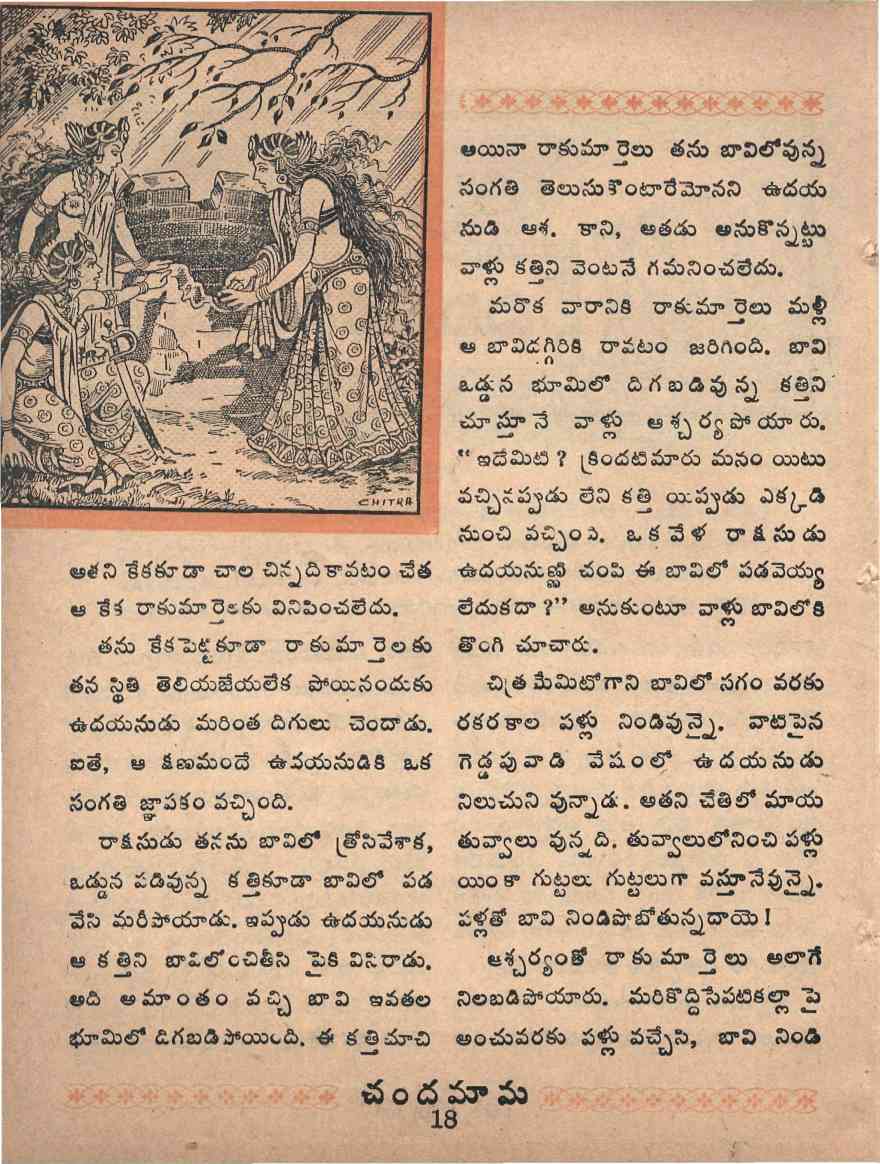 CHITRA
అతని కేకకూడా చాల చిన్నదికావటం చేత
ఆ కేక రాకుమార్తెలకు వినిపించలేదు.
తను కేకపెట్టికూడా రాకుమార్తెలకు
తన స్థితి తెలియజేయలేక పోయినందుకు
ఉదయనుడు మరింత దిగులు చెందాడు.
ఐతే, ఆ క్షణమందే ఉదయనుడికి ఒక
సంగతి జ్ఞాపకం వచ్చింది.
రాక్షసుడు తనను బావిలో త్రోసివేశాక,
ఒడ్డున పడివున్న కత్తికూడా బావిలో పడ
వేసి మరీపోయాడు. ఇప్పుడు ఉదయనుడు
ఆ కత్తిని బావిలోంచితీసి పైకి విసిరాడు.
అది అమాంతం వచ్చి బావి ఇవతల
భూమిలో దిగబడిపోయింది. ఈ కత్తిచూచి
అయినా రాకుమార్తెలు తను బావిలోవున్న
సంగతి తెలుసుకొంటారేమోనని ఉదయ
నుడి ఆశ. కాని, అతడు అనుకొన్నట్టు
వాళ్లు కత్తిని వెంటనే గమనించలేదు.
మరొక వారానికి రాకుమార్తెలు మళ్లీ
ఆ బావిదగ్గిరికి రావటం జరిగింది. బావి
ఒడ్డున భూమిలో దిగబడివున్న కత్తిని
చూస్తూనే వాళ్లు ఆశ్చర్యపోయారు.
“ఇదేమిటి? క్రిందటిమారు మనం యిటు
వచ్చినప్పుడు లేని కత్తి యిప్పుడు ఎక్కడి
నుంచి వచ్చింది. ఒకవేళ రాక్షసుడు
ఉదయనుణ్ణి చంపి ఈ బావిలో పడవెయ్య
లేదుకదా?” అనుకుంటూ వాళ్లు బావిలోకి
తొంగి చూచారు.
చిత్రమేమిటోగాని బావిలో సగం వరకు
రకరకాల పళ్లు నిండివున్నై. వాటిపైన
గెడ్డపువాడి వేషంలో ఉదయనుడు
నిలుచుని వున్నాడు. అతని చేతిలో మాయ
తువ్వాలు వున్నది. తువ్వాలులోనించి పళ్లు
యింకా గుట్టలు గుట్టలుగా వస్తూనేవున్నై.
పళ్లతో బావి నిండిపోబోతున్నదాయె!
ఆశ్చర్యంతో రాకుమార్తెలు అలాగే
నిలబడిపోయారు. మరికొద్దిసేపటికల్లా పై
అంచువరకు పళ్లు వచ్చేసి, బావి నిండి
చందమామ
18